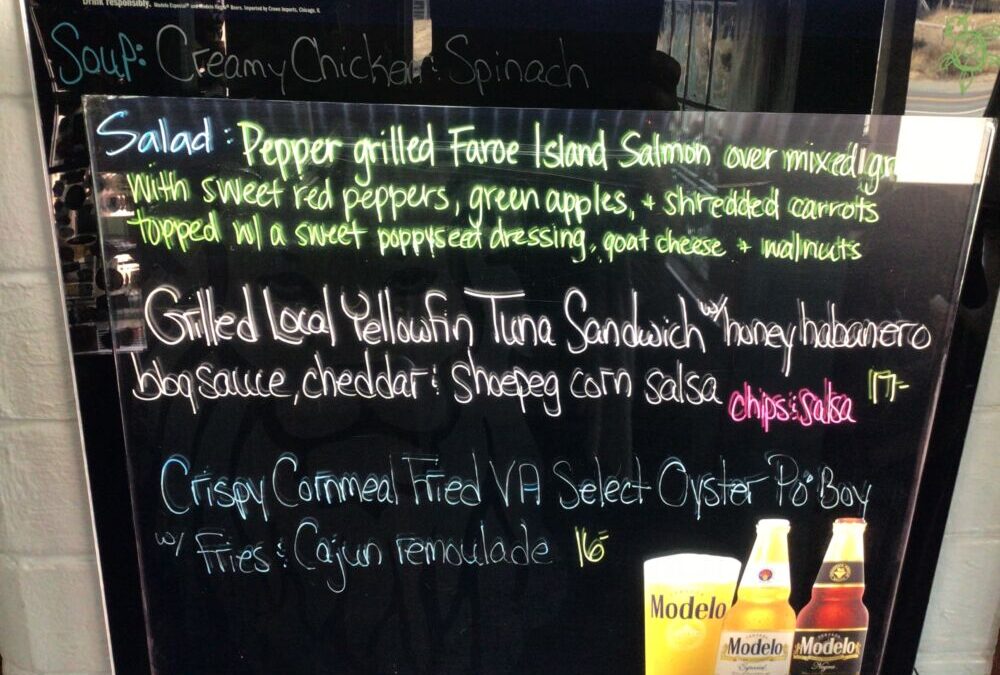 Drink responsibly. Modelo Especial® and Modelo Negra® Beers. Imported by Crown Imports, Chicago, IL
Soup: Creamy Chicken & Spinach
Salad: Pepper grilled Faroe Island Salmon over mixed gr
with sweet red peppers, green apples, + shredded carrots
topped w/ a sweet poppyseed dressing, goat cheese + walnuts
Grilled Local Yellowfin Tuna Sandwich w/ honey habanero
bbq sauce, cheddar & shoepeg corn salsa chips & salsa 17-
Crispy Cornmeal Fried VA Select Oyster Po' Boy
w/ Fries & Cajun remoulade 16-
Modelo
Modelo
Especial
Modelo
Negra